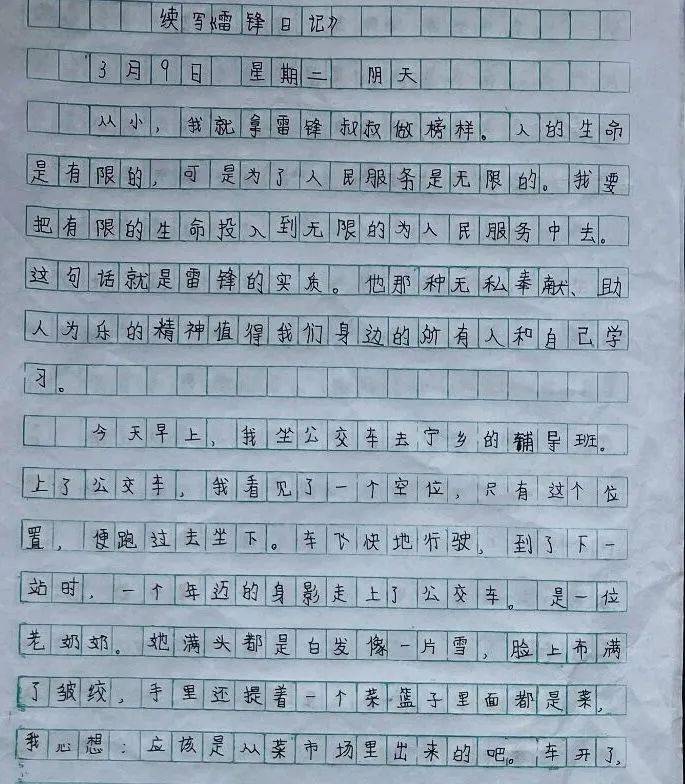 续写《雷锋日记》
3月9日 星期二 阴天
从小，我就拿雷锋叔叔做榜样。人的生命
是有限的，可是为了人民服务是无限的。我要
把有限的生命投入到无限的为人民服务中去。
这句话就是雷锋的实质。他那种无私奉献、助
人为乐的精神值得我们身边的所有人和自己学
习。
今天早上，我坐公交车去宁乡的辅导班。
上了公交车，我看见了一个空位，只有这个位
置，便跑过去坐下。车飞快地行驶，到了下一
站时，一个年迈的身影走上了公交车。是一位
老奶奶。她满头都是白发像一片雪，脸上布满
了皱绞，手里还提着一个菜篮子里面都是菜，
我心想：应该是从菜市场里出来的吧。车开了，